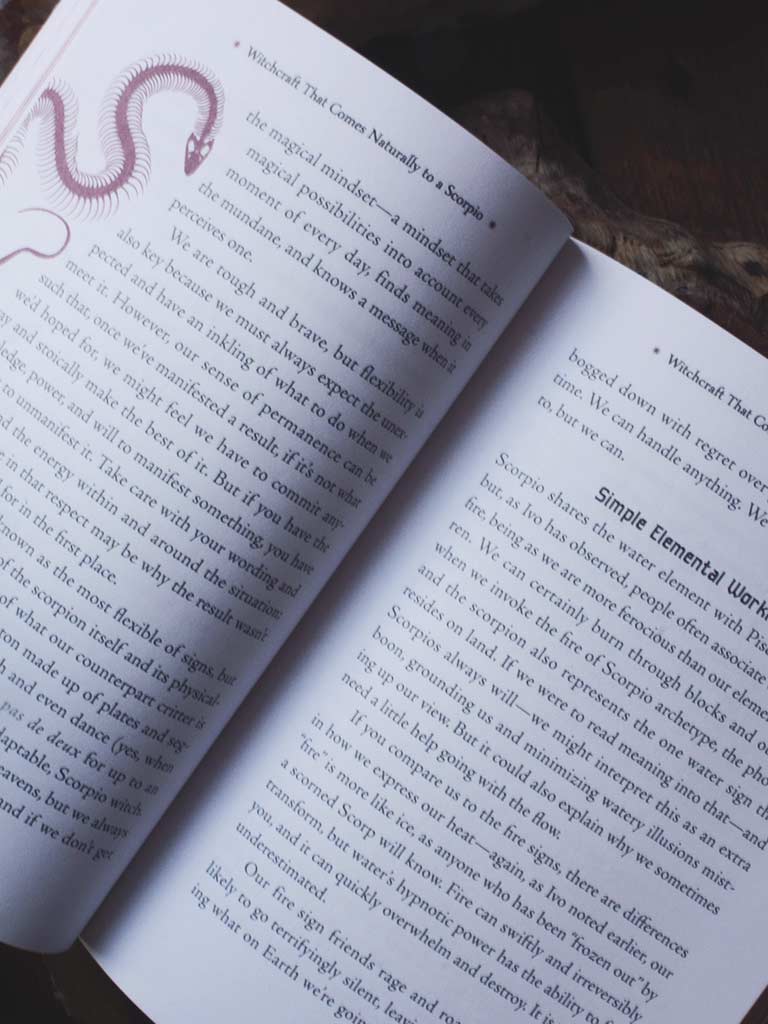 Witchcraft That Comes Naturally to a Scorpio
the magical mindset—a mindset that takes
magical possibilities into account every
moment of every day, finds meaning in
the mundane, and knows a message when it
perceives one.
We are tough and brave, but flexibility is
also key because we must always expect the unex-
pected and have an inkling of what to do when we
meet it. However, our sense of permanence can be
such that, once we've manifested a result, if it's not what
we'd hoped for, we might feel we have to commit any-
and stoically make the best of it. But if you have the
power, and will to manifest something, you have
to unmanifest it. Take care with your wording and
the energy within and around the situation;
in that respect may be why the result wasn't
for in the first place.
known as the most flexible of signs, but
of the scorpion itself and its physical-
of what our counterpart critter is
made up of plates and seg-
and even dance (yes, when
pas de deux for up to an
Scorpio witch.
but we always
and if we don't get
Witchcraft That
bogged down with regret over
time. We can handle anything. We
to, but we can.
Simple Elemental
Scorpio shares the water element with
but, as Ivo has observed, people often associate
fire, being as we are more ferocious than our
ren. We can certainly burn through blocks and
when we invoke the fire of Scorpio archetype, the
and the scorpion also represents the one water sign
resides on land. If we were to read meaning into that—and
Scorpios always will—we might interpret this as an extra
boon, grounding us and minimizing watery illusions mist-
ing up our view. But it could also explain why we sometimes
need a little help going with the flow.
If you compare us to the fire signs, there are differences
in how we express our heat—again, as Ivo noted earlier, our
“fire” is more like ice, as anyone who has been “frozen out” by
a scorned Scorp will know. Fire can swiftly and irreversibly
transform, but water's hypnotic power has the ability to
you, and it can quickly overwhelm and destroy. It is
underestimated.
Our fire sign friends rage and
likely to go terrifyingly silent,
ing what on Earth we're